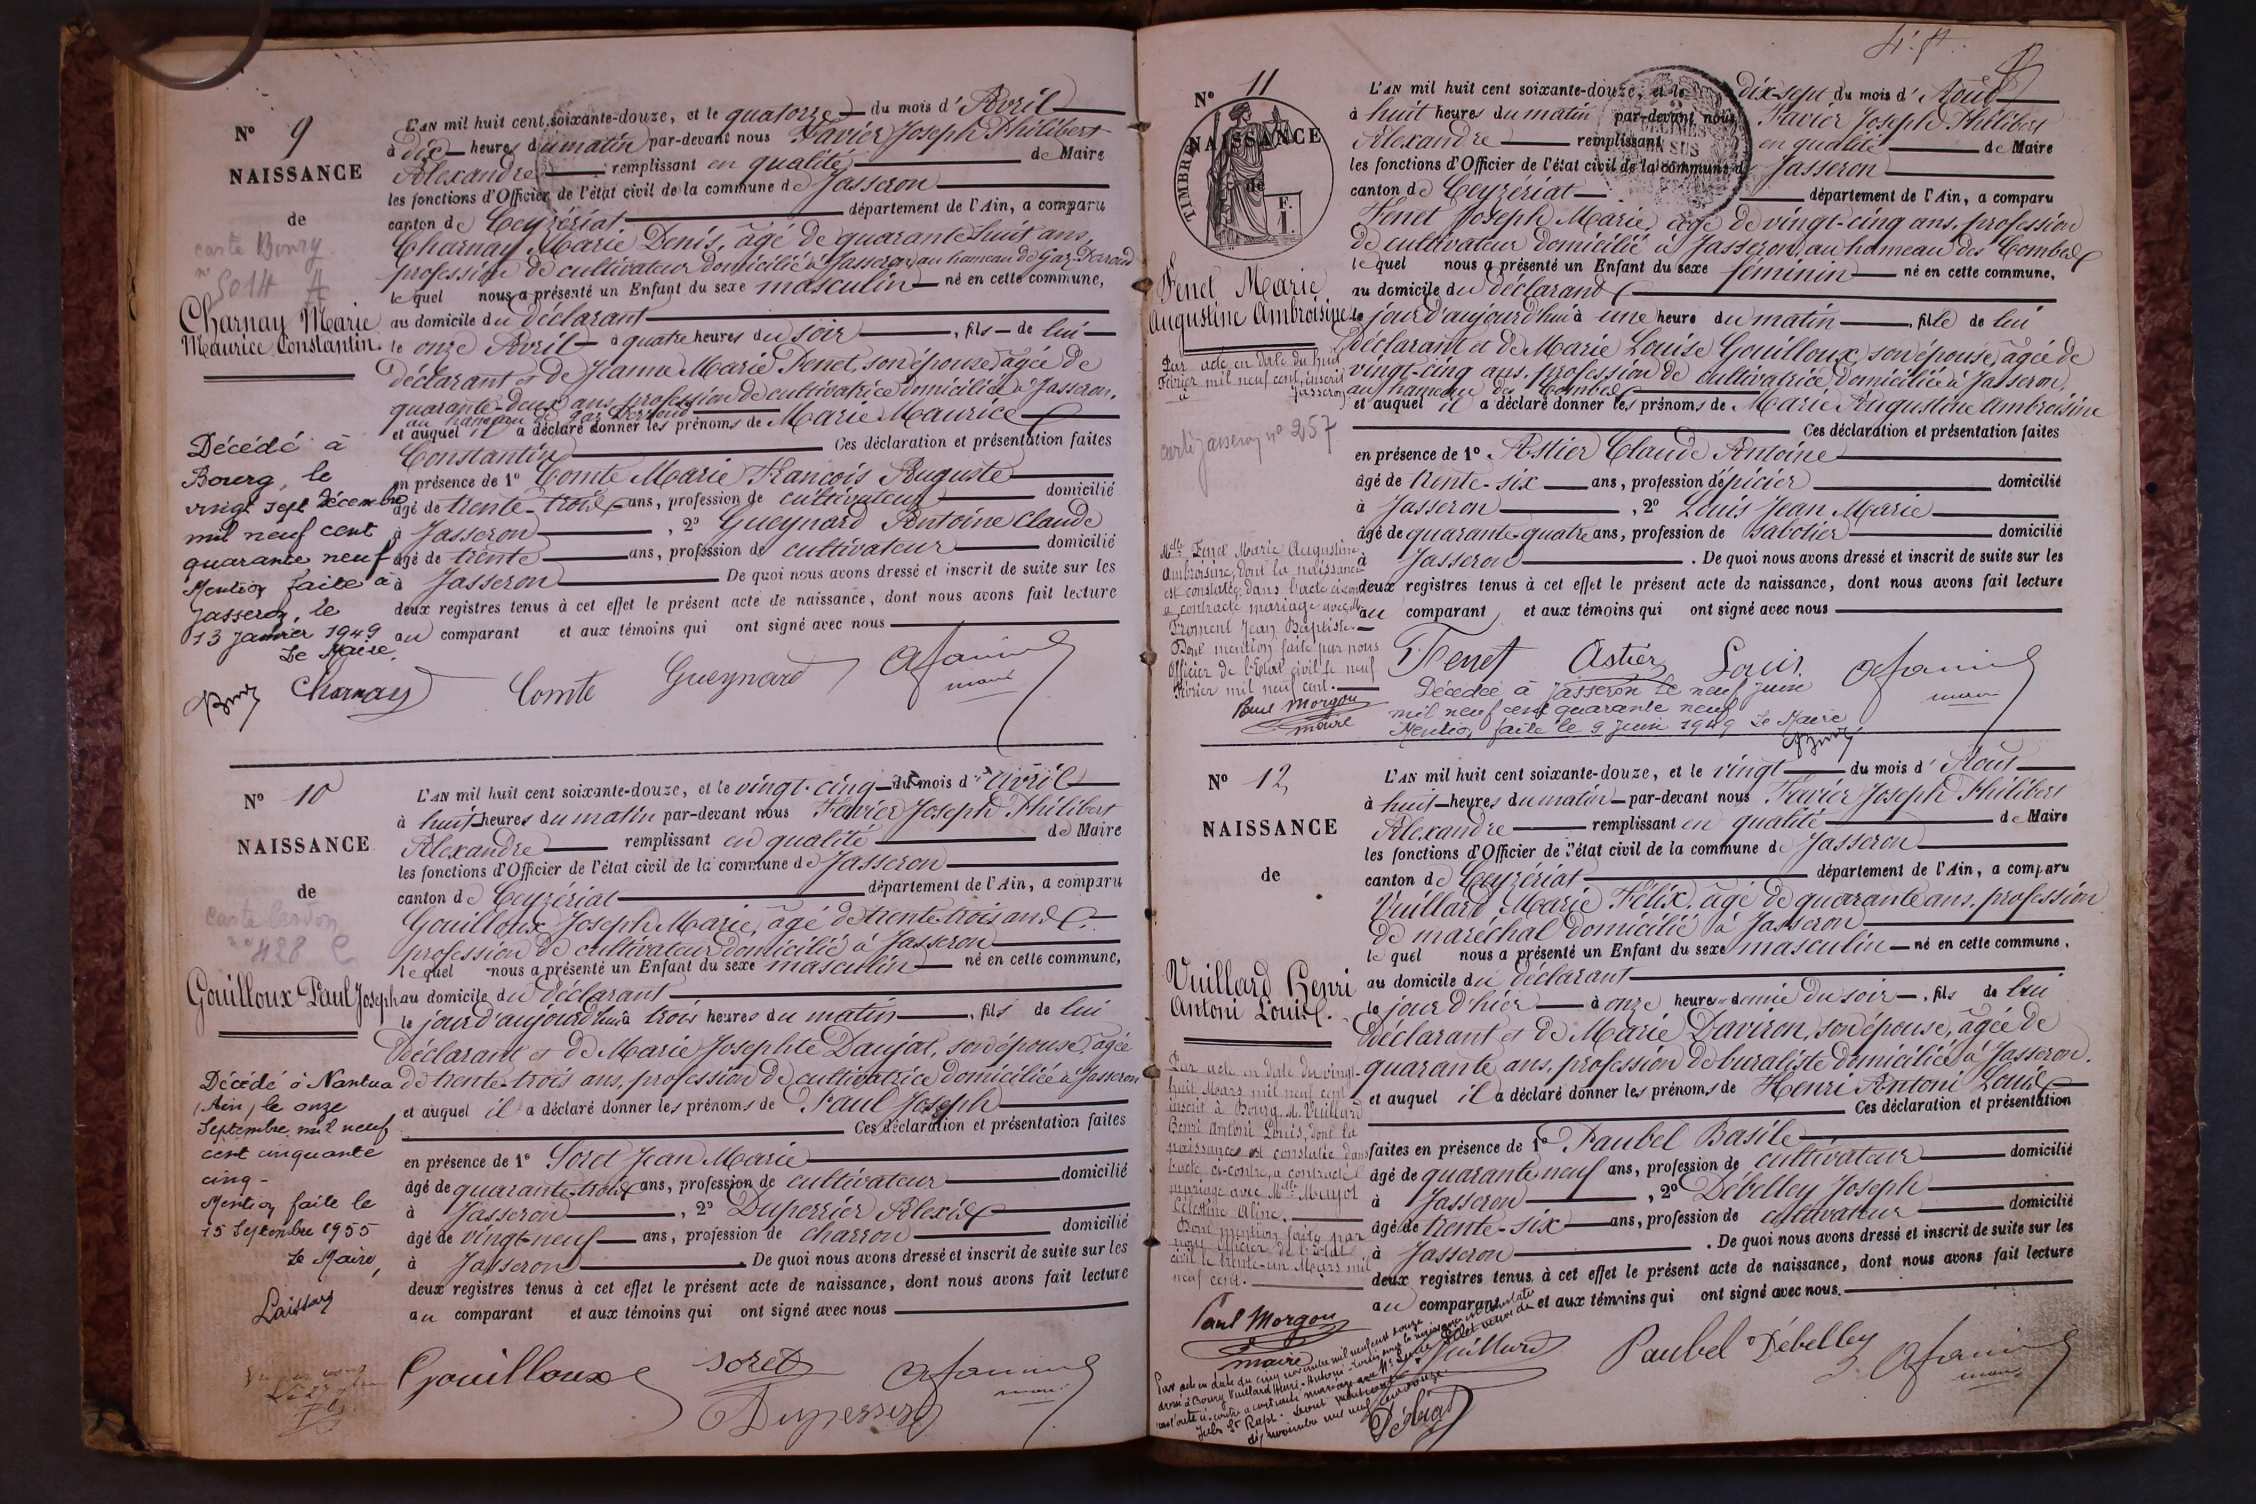 N° 9
NAISSANCE
de
carte Bourg
n° 5014 A
Charnay Marie
Maurice Constantin.
Décédé à
Bourg, le
vingt sept Décembre
mil neuf cent
quarante neuf
Mention faite à
Jasseron, le
13 Janvier 1949
Le Maire.
L'AN mil huit cent soixante-douze, et le quatorze du mois d'Avril
à dix heures du matin par-devant nous Favier Joseph Philibert
Alexandre remplissant en qualité de Maire
les fonctions d'Officier de l'état civil de la commune de Jasseron
canton de Ceyzériat département de l'Ain, a comparu
Charnay Marie Denis, âgé de quarante huit ans,
profession de cultivateur domicilié à Jasseron, au hameau de
le quel nous a présenté un Enfant du sexe masculin né en cette commune,
au domicile du déclarant
le onze Avril à quatre heures du soir, fils de lui
déclarant et de Jeanne Marie Fenet, son épouse, âgée de
quarante-deux ans, profession de cultivatrice domiciliée à Jasseron,
au hameau de
et auquel il a déclaré donner les prénoms de Marie Maurice
Constantin Ces déclaration et présentation faites
en présence de 1° Comte Marie François Auguste
âgé de trente-trois ans, profession de cultivateur domicilié
à Jasseron, 2° Gueynard Antoine Claude
âgé de trente ans, profession de cultivateur domicilié
à Jasseron De quoi nous avons dressé et inscrit de suite sur les
deux registres tenus à cet effet le présent acte de naissance, dont nous avons fait lecture
au comparant et aux témoins qui ont signé avec nous
Charnay Comte Gueynard Afavier
maire
N° 10
NAISSANCE
de
n° 428 C
Gouilloux Paul Joseph
Décédé à Nantua
(Ain) le onze
Septembre mil neuf
cent cinquante
cinq -
Mention faite le
15 Septembre 1955
Le Maire,
L'AN mil huit cent soixante-douze, et le vingt-cinq du mois d'avril
à huit heures du matin par-devant nous Favier Joseph Philibert
Alexandre remplissant en qualité de Maire
les fonctions d'Officier de l'état civil de la commune de Jasseron
canton de Ceyzériat département de l'Ain, a comparu
Gouilloux Joseph Marie, âgé de trente-trois ans
profession de cultivateur domicilié à Jasseron
le quel nous a présenté un Enfant du sexe masculin né en cette commune,
au domicile du déclarant
le jour d'aujourd'hui à trois heures du matin, fils de lui
Déclarant et de Marie Josephte Daujat, son épouse, âgée
de trente-trois ans, profession de cultivatrice domiciliée à Jasseron
et auquel il a déclaré donner les prénoms de Paul Joseph
Ces déclaration et présentation faites
en présence de 1° Soret Jean Marie
âgé de quarante-trois ans, profession de cultivateur domicilié
à Jasseron, 2° Duperrier Alexis
âgé de vingt-neuf ans, profession de charron domicilié
à Jasseron. De quoi nous avons dressé et inscrit de suite sur les
deux registres tenus à cet effet le présent acte de naissance, dont nous avons fait lecture
au comparant et aux témoins qui ont signé avec nous
Gouilloux Soret Afavier
Duperrier maire
N° 11
NAISSANCE
de
TIMBRE
F.
1.
Fenet Marie
Augustine Ambroisine
Par acte en date du huit
Février mil neuf cent, inscrit
à Jasseron
carte Jasseron n° 257
Melle Fenet Marie Augustine
Ambroisine, dont la naissance
est constatée dans l'acte ci-contre
a contracté mariage avec M.
Froment Jean Baptiste.
Dont mention faite par nous
Officier de l'Etat civil le neuf
Février mil neuf cent.
Paul Morgon
maire
L'AN mil huit cent soixante-douze, et le dix-sept du mois d'Août
à huit heures du matin par-devant nous Favier Joseph Philibert
Alexandre remplissant en qualité de Maire
les fonctions d'Officier de l'état civil de la commune de Jasseron
canton de Ceyzériat département de l'Ain, a comparu
Fenet Joseph Marie, âgé de vingt-cinq ans, profession
de cultivateur domicilié à Jasseron, au hameau des Combes
le quel nous a présenté un Enfant du sexe féminin né en cette commune,
au domicile du déclarant
le jour d'aujourd'hui à une heure du matin, fille de lui
Déclarant et de Marie Louise Gouilloux, son épouse, âgée de
vingt-cinq ans, profession de cultivatrice, domiciliée à Jasseron,
au hameau des Combes
et auquel il a déclaré donner les prénoms de Marie Augustine Ambroisine
Ces déclaration et présentation faites
en présence de 1° Astier Claude Antoine
âgé de trente-six ans, profession d'épicier domicilié
à Jasseron, 2° Louis Jean Marie
âgé de quarante-quatre ans, profession de sabotier domicilié
à Jasseron. De quoi nous avons dressé et inscrit de suite sur les
deux registres tenus à cet effet le présent acte de naissance, dont nous avons fait lecture
au comparant, et aux témoins qui ont signé avec nous
Fenet Astier Louis. Afavier
maire
Décédée à Jasseron le neuf juin
mil neuf cent quarante neuf
Mention faite le 9 juin 1949 Le Maire
N° 12
NAISSANCE
de
Vuillard Henri
Antoni Louis.
Par acte en date du vingt-
huit Mars mil neuf cent
inscrit à Bourg, M. Vuillard
Henri Antoni Louis, dont la
naissance est constatée dans
l'acte ci-contre, a contracté
mariage avec Melle
Célestine Aline.
Dont mention faite par
nous Officier de l'Etat
civil le trente-un Mars mil
neuf cent.
Paul Morgon
maire
L'AN mil huit cent soixante-douze, et le vingt du mois d'Août
à huit heures du matin par-devant nous Favier Joseph Philibert
Alexandre remplissant en qualité de Maire
les fonctions d'Officier de l'état civil de la commune de Jasseron
canton de Ceyzériat département de l'Ain, a comparu
Vuillard Marie Félix, âgé de quarante ans, profession
de maréchal domicilié à Jasseron
le quel nous a présenté un Enfant du sexe masculin né en cette commune,
au domicile du déclarant
le jour d'hier à onze heures demie du soir, fils de lui
Déclarant et de Marie Daviron, son épouse, âgée de
quarante ans, profession de buraliste domiciliée à Jasseron.
et auquel il a déclaré donner les prénoms de Henri Antoni Louis
Ces déclaration et présentation
faites en présence de 1° Paubel Basile
âgé de quarante neuf ans, profession de cultivateur domicilié
à Jasseron, 2° Débelley Joseph
âgé de trente-six ans, profession de cultivateur domicilié
à Jasseron. De quoi nous avons dressé et inscrit de suite sur les
deux registres tenus à cet effet le présent acte de naissance, dont nous avons fait lecture
au comparant et aux témoins qui ont signé avec nous.
Vuillard Paubel Débelley Afavier
maire